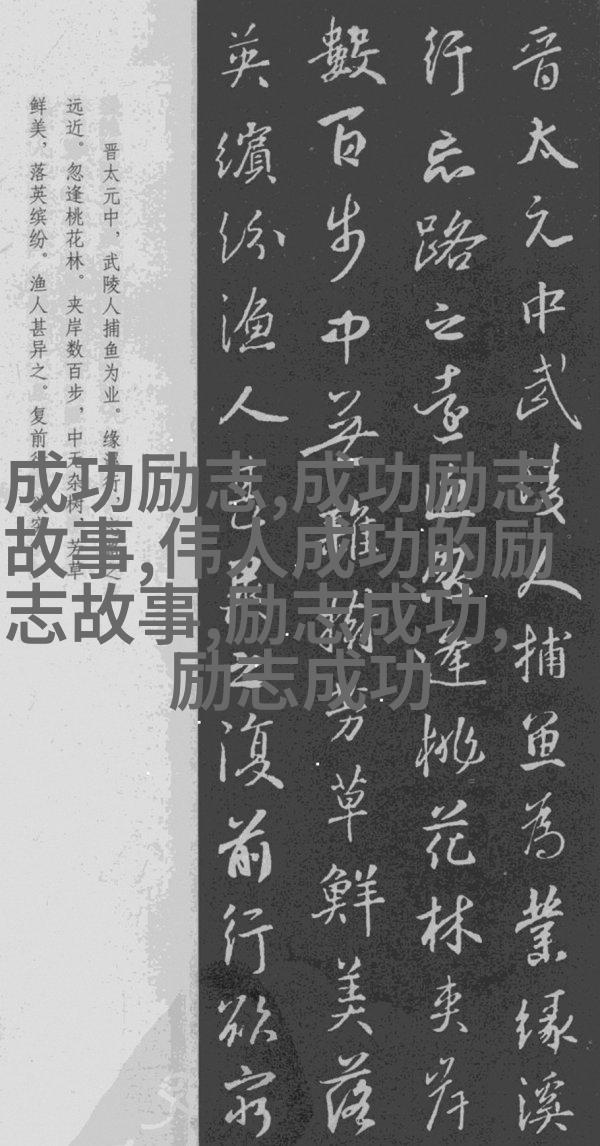 晉太元中武陵人捕魚為業緣溪
行忘路之遠近忽逢桃花林夾岸
數百步中無雜樹芳草鮮美落
英繽紛漁人甚異之復前行欲窮
晋太元中，武陵人捕鱼为业。缘溪行，忘路之
远近。忽逢桃花林。夹岸数百步，中无杂树，芳草
鲜美，落英缤纷。渔人甚异之。复前行，欲穷
成功励志,成功励志
故事,伟人成功的励
志故事,励志成功,
励志成功